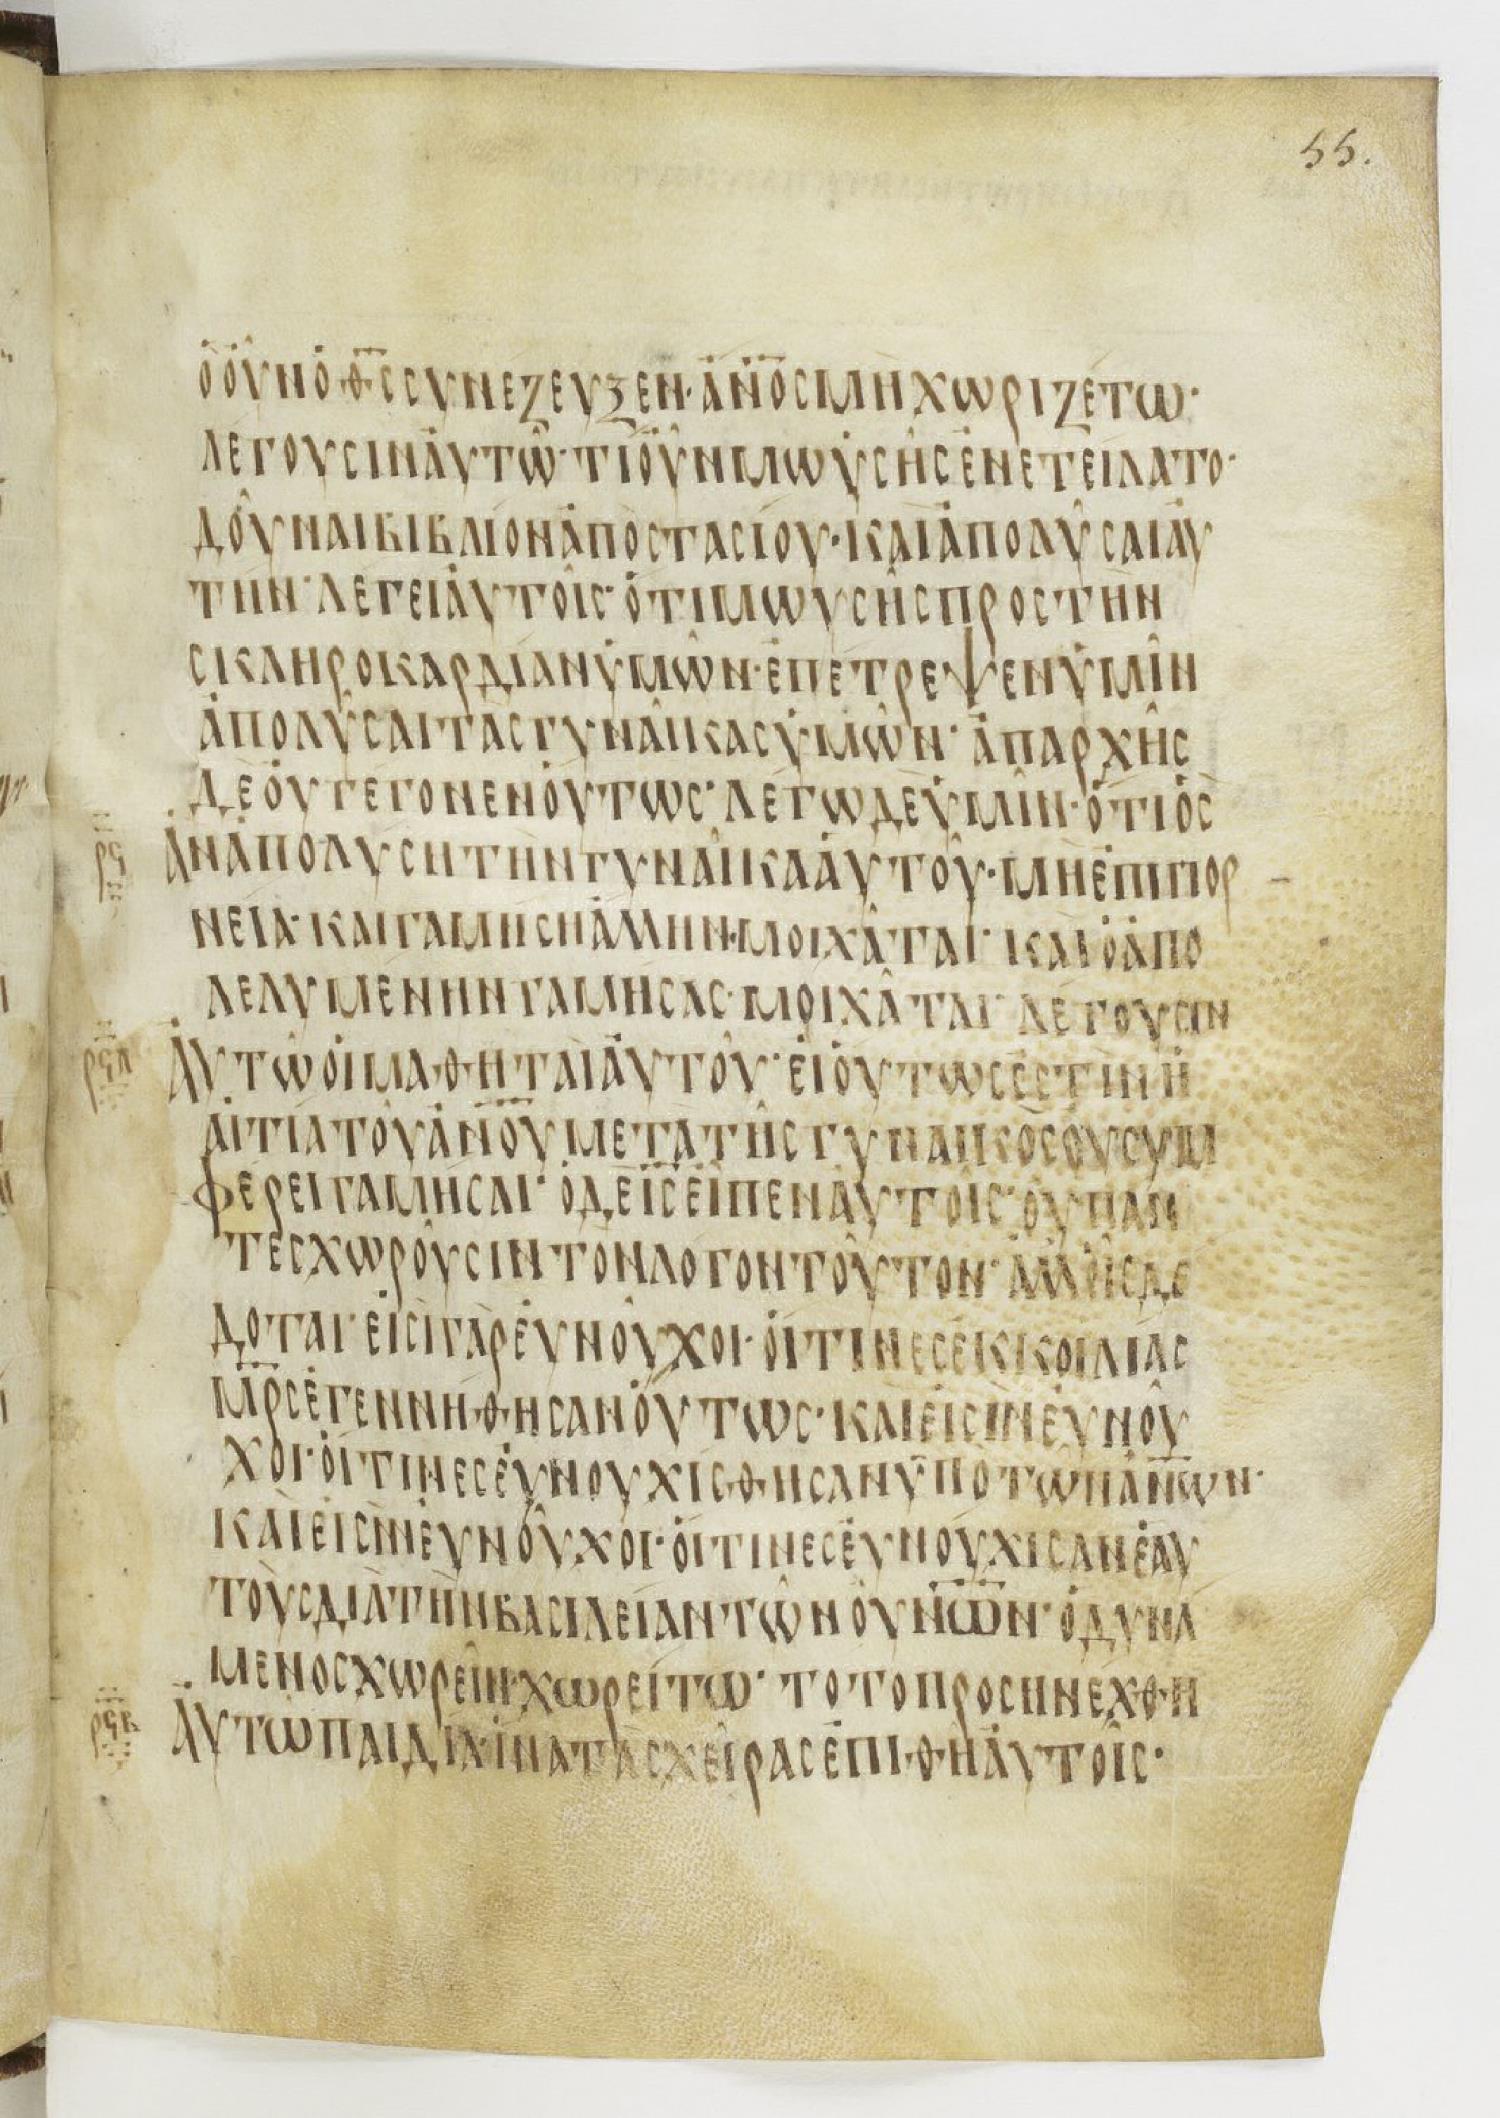 55.
ὁ οὖν ὁ θ̅ς̅ συνέζευξεν· ἄν̅ο̅ς μὴ χωριζέτω·
λέγουσιν αὐτῶ· τί οὖν μωϋσῆς ἐνετείλατο·
δοῦναι βιβλίον ἀποστασίου· καὶ ἀπολῦσαι αὐ
τήν· λέγει αὐτοῖς· ὅτι μωυσῆς πρὸς τὴν
σκληροκαρδίαν ὑμῶν· ἐπέτρεψεν ὑμῖν
ἀπολῦσαι τὰς γυναῖκας ὑμῶν· ἀπαρχῆς
δὲ οὐ γέγονεν οὕτως· λέγω δὲ ὑμῖν· ὅτι ὃς
ρϟ
ἂν ἀπολύση τὴν γυναῖκα αὐτοῦ· μὴ ἐπὶ πορ
νεία· καὶ γαμήση ἄλλην· μοιχᾶται· καὶ ὁ ἀπο
λελυμένην γαμήσας· μοιχᾶται· λέγουσιν
ρϟα
αὐτῶ οἱ μαθηταὶ αὐτοῦ· εἰ οὕτως ἐστὶν ἡ
αἰτία τοῦ ἀν̅ο̅υ μετὰ τῆς γυναικὸς οὐ συμ
φέρει γαμῆσαι· ὁ δὲ ι̅ς̅ εἶπεν αὐτοῖς· οὐ πάν
τες χωροῦσιν τὸν λόγον τοῦτον· ἀλλ' οἷς δέ
δοται· εἰσὶ γὰρ εὐνοῦχοι· οἵτινες ἐκ κοιλίας
μ̅ρ̅ς ἐγεννήθησαν οὕτως· καὶ εἰσὶν εὐνοῦ
χοι· οἵτινες εὐνουχίσθησαν ὑπὸ τῶν ἀν̅ω̅ν·
καὶ εἰσὶν εὐνοῦχοι· οἵτινες εὐνούχισαν ἑαυ
τοὺς διὰ τὴν βασιλείαν τῶν οὐν̅ω̅ν· ὁ δυνά
μενος χωρεῖν· χωρείτω· τότο προσηνέχθη
ρϟβ
αὐτῶ παιδία· ἵνα τὰς χεῖρας ἐπιθῆ αὐτοῖς·